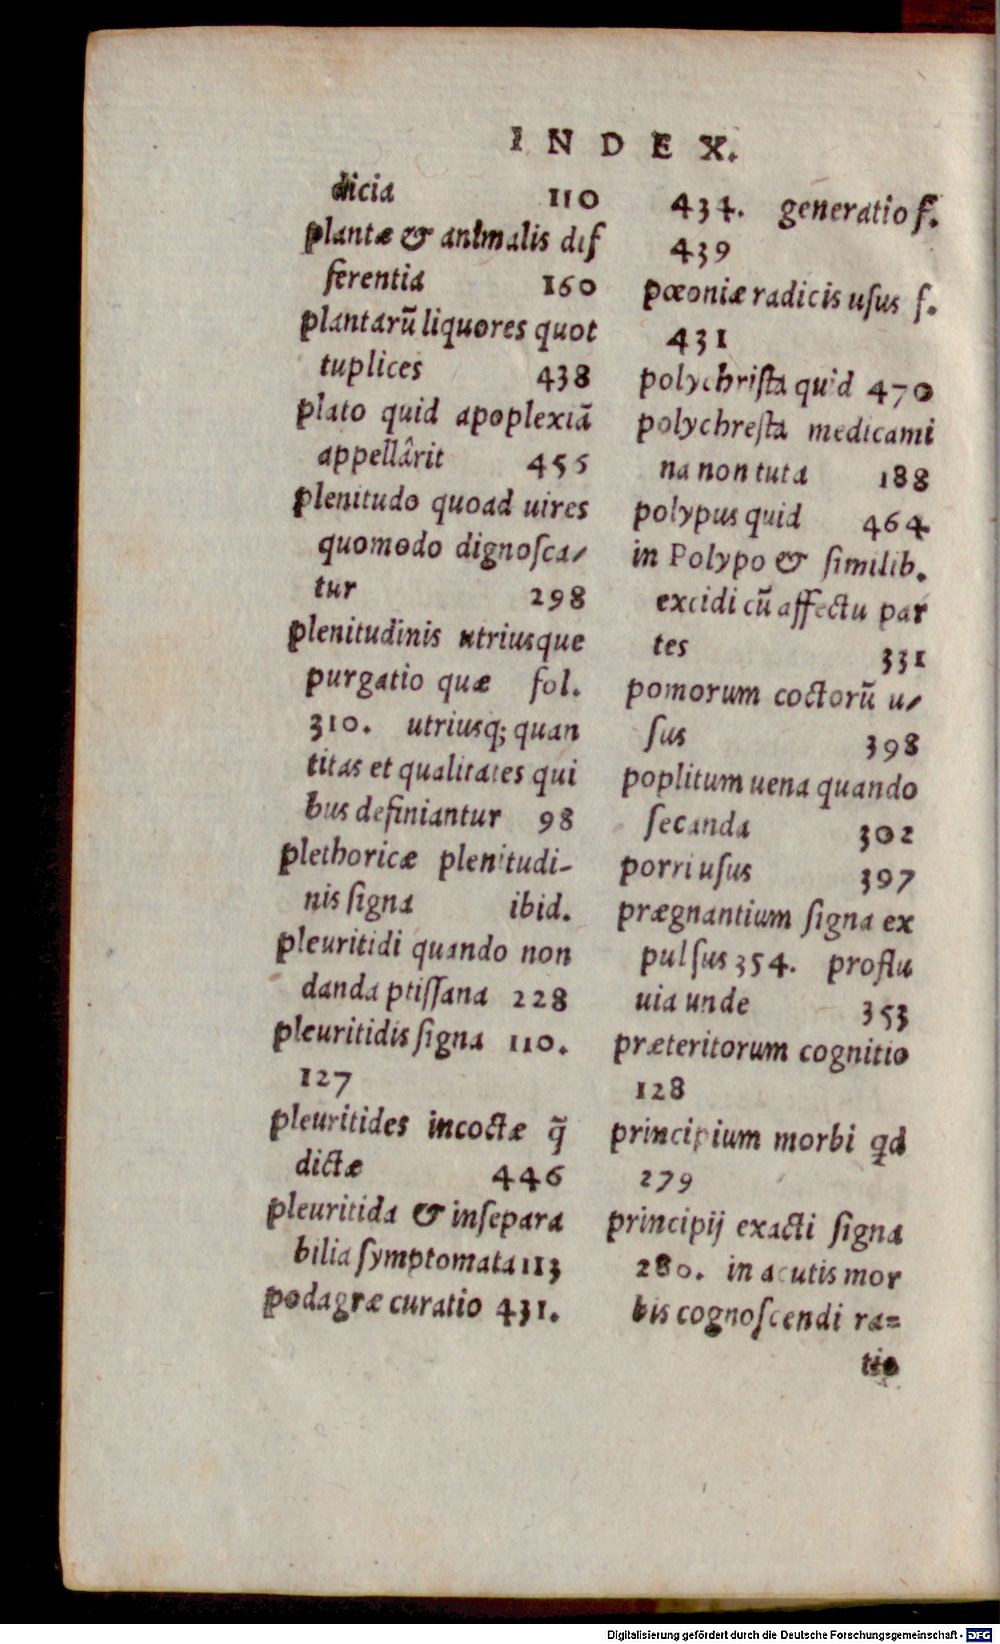 INDEX.
dicia 110
plantæ & animalis dif
ferentia 160
plantarũ liquores quot
tuplices 438
plato quid apoplexiã
appellârit 456
plenitudo quoad uires
quomodo dignosca-
tur 298
plenitudinis utriusque
purgatio quæ fol.
310. utriusq; quan
titas et qualitates qui
bus definiantur 98
plethoricæ plenitudi-
nis signa ibid.
pleuritidi quando non
danda ptissana 228
pleuritidis signa 110.
127
pleuritides incoctæ q̃
dictæ 446
pleuritida & insepara
bilia symptomata 113
podagræ curatio 431.
434. generatio f.
439
pœoniæ radicis usus f.
431
polychrista quid 470
polychresta medicami
na non tuta 188
polypus quid 464
in Polypo & similib.
excidi cũ affectu par
tes 331
pomorum coctorũ u-
sus 398
poplitum uena quando
secanda 302
porri usus 397
prægnantium signa ex
pulsus 354. proflu
uia unde 353
præteritorum cognitio
128
principium morbi qd
279
principij exacti signa
280. in acutis mor
bis cognoscendi ra=
tio
Digitalisierung gefördert durch die Deutsche Forschungsgemeinschaft - DFG